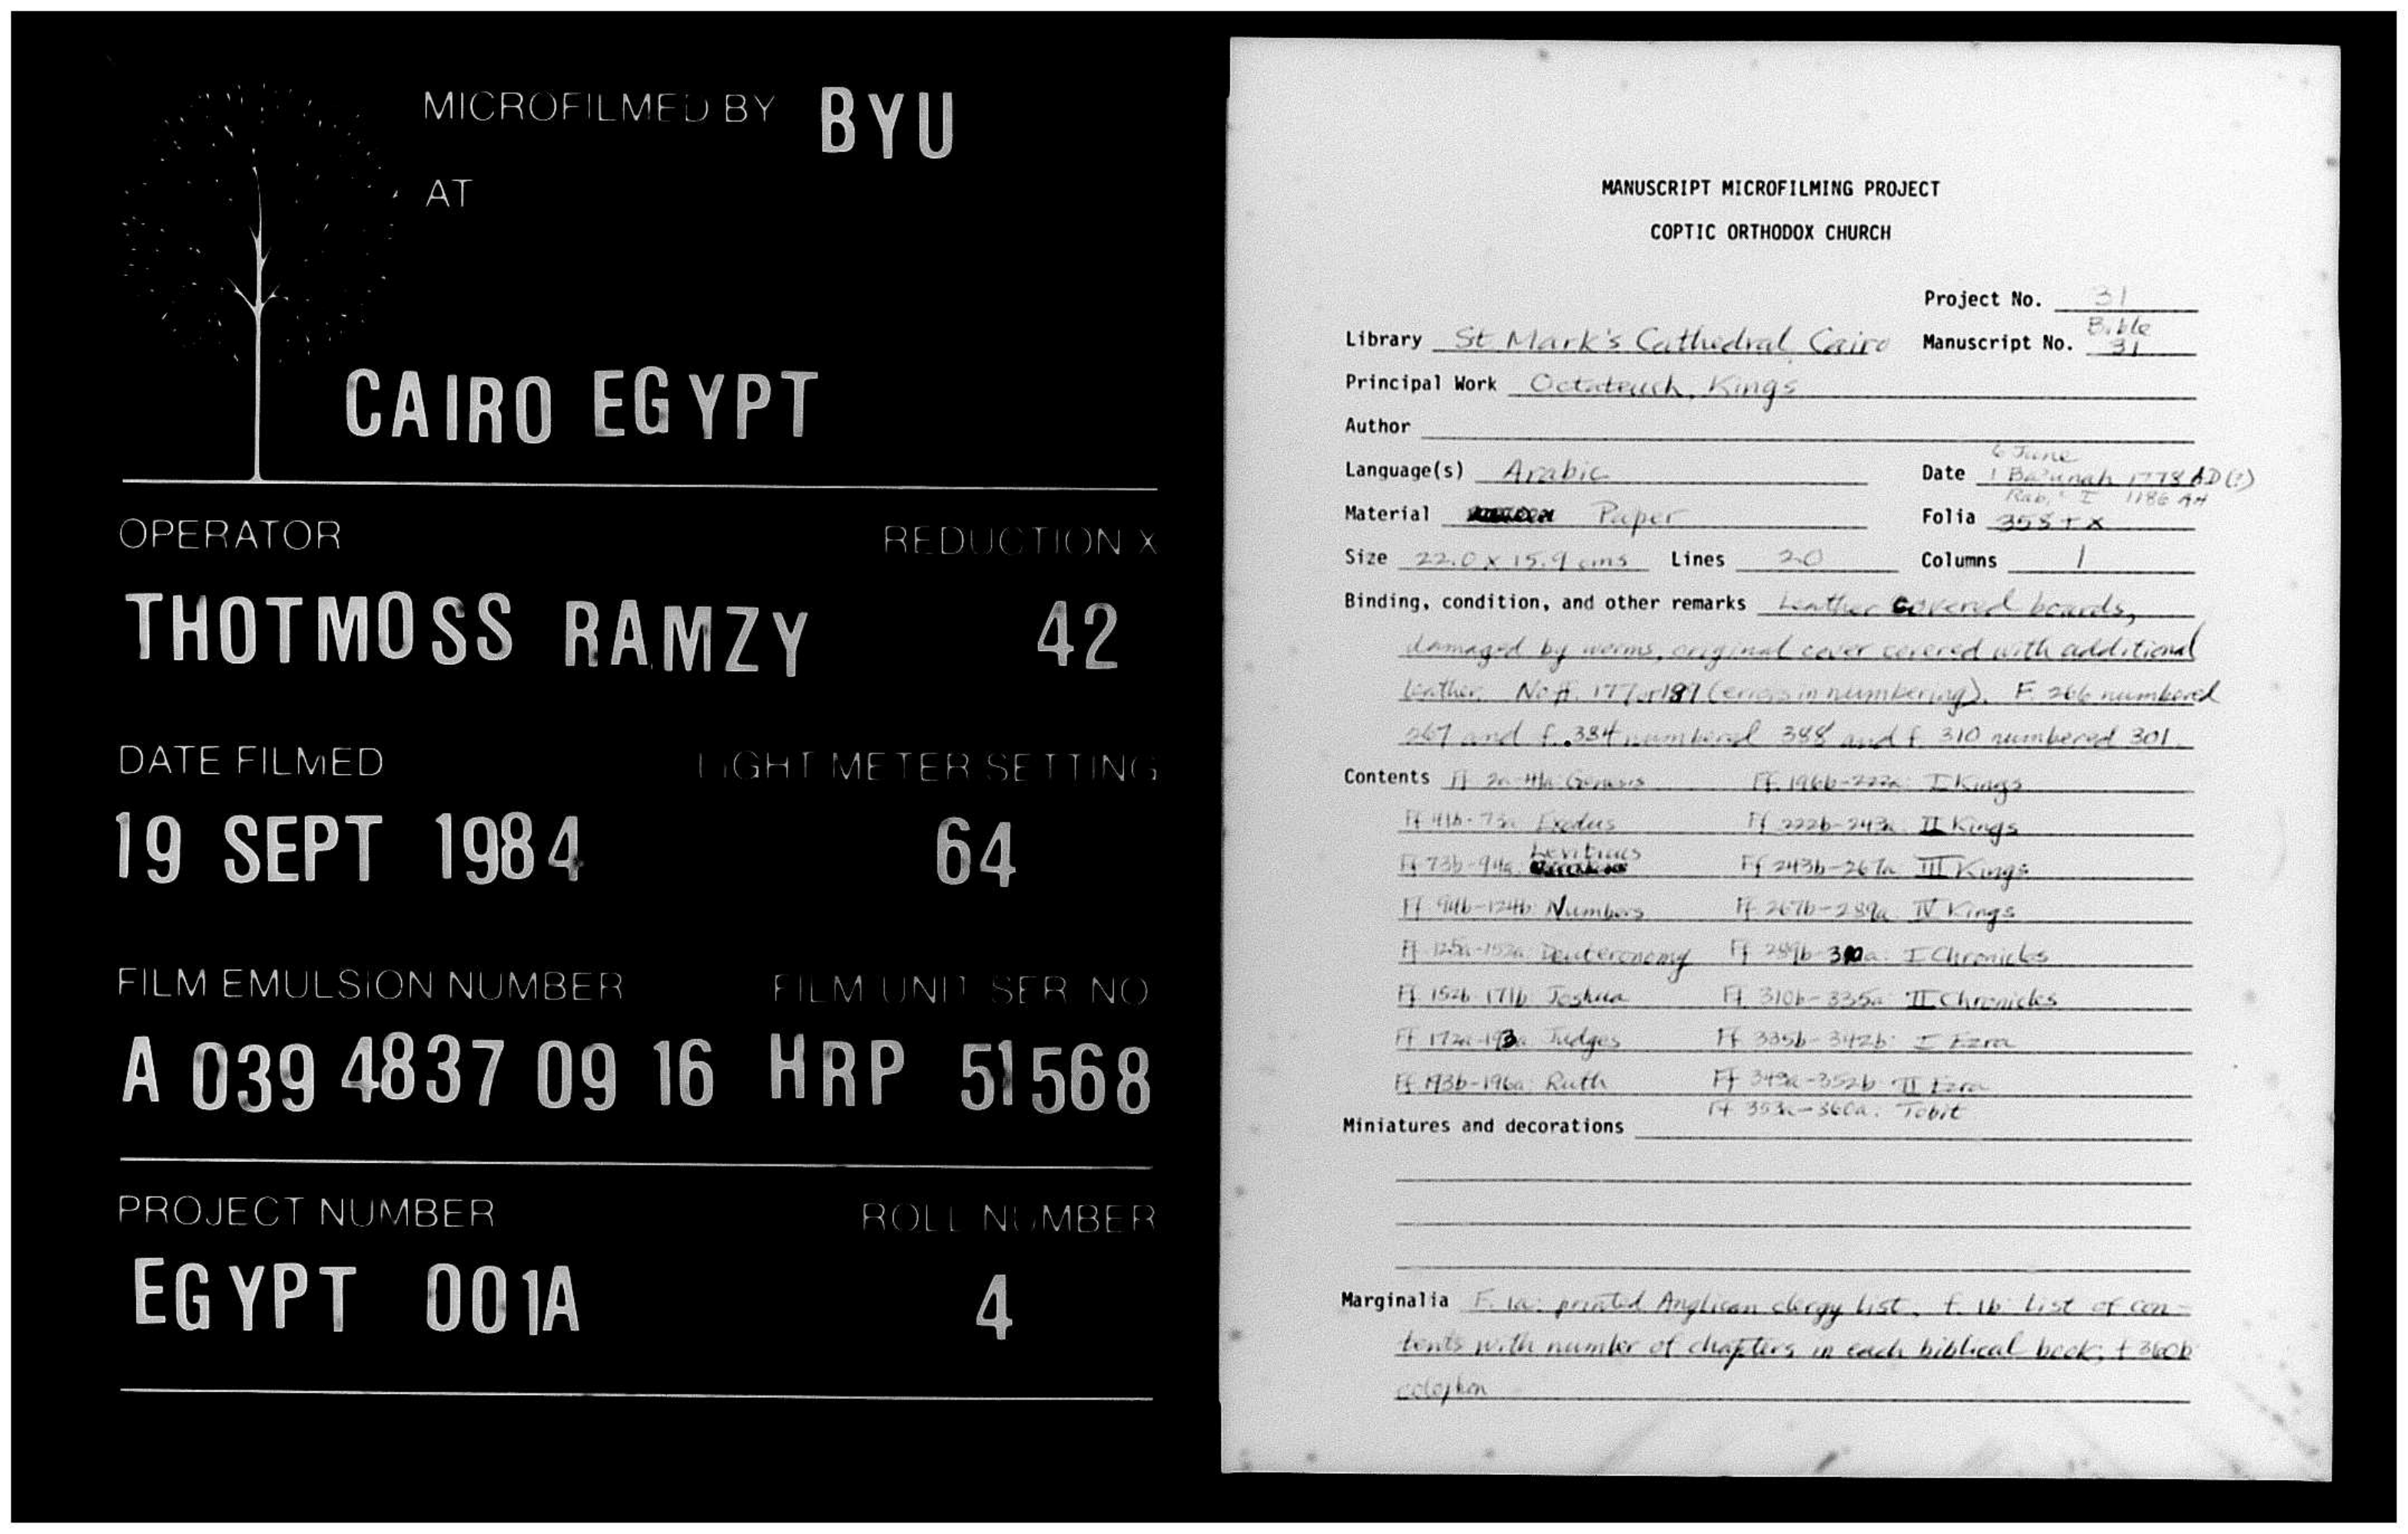 MICROFILMED BY BYU
AT
CAIRO EGYPT
OPERATOR REDUCTION X
THOTMOSS RAMZY 42
DATE FILMED LIGHT METER SETTING
19 SEPT 1984 64
FILM EMULSION NUMBER FILM UNIT SER NO
A 039 4837 09 16 HRP 51568
PROJECT NUMBER ROLL NUMBER
EGYPT 001A 4
MANUSCRIPT MICROFILMING PROJECT
COPTIC ORTHODOX CHURCH
Project No. 31
Library St Mark's Cathedral, Cairo Manuscript No. Bible 31
Principal Work Octateuch, Kings
Author
6 June
Language(s) Arabic Date 1 Ba'unah 1778 AD(?)
Rabi' I 1186 AH
Material Paper Folia 358 + x
Size 22.0 x 15.9 cms Lines 20 Columns 1
Binding, condition, and other remarks Leather covered boards,
damaged by worms, original cover covered with additional
leather. No ff. 177 or 189 (errors in numbering). F. 266 numbered
267 and f. 384 numbered 388 and f. 310 numbered 301.
Contents Ff 2a-41a: Genesis Ff. 196b-222a: I Kings
Ff 41b-73a Exodus Ff 222b-243a: II Kings
Ff 73b-94a: Leviticus Ff 243b-267a III Kings
Ff 94b-124b: Numbers Ff 267b-289a IV Kings
Ff 125a-152a Deuteronomy Ff 289b-310a: I Chronicles
Ff 152b-171b Joshua Ff 310b-335a: II Chronicles
Ff 172a-193a Judges Ff 335b-342b: I Ezra
Ff 193b-196a: Ruth Ff 343a-352b II Ezra
Ff 353a-360a: Tobit
Miniatures and decorations
Marginalia F. 1a: printed Anglican clergy list, f. 1b: list of con-
tents with number of chapters in each biblical book; f 360b
colophon